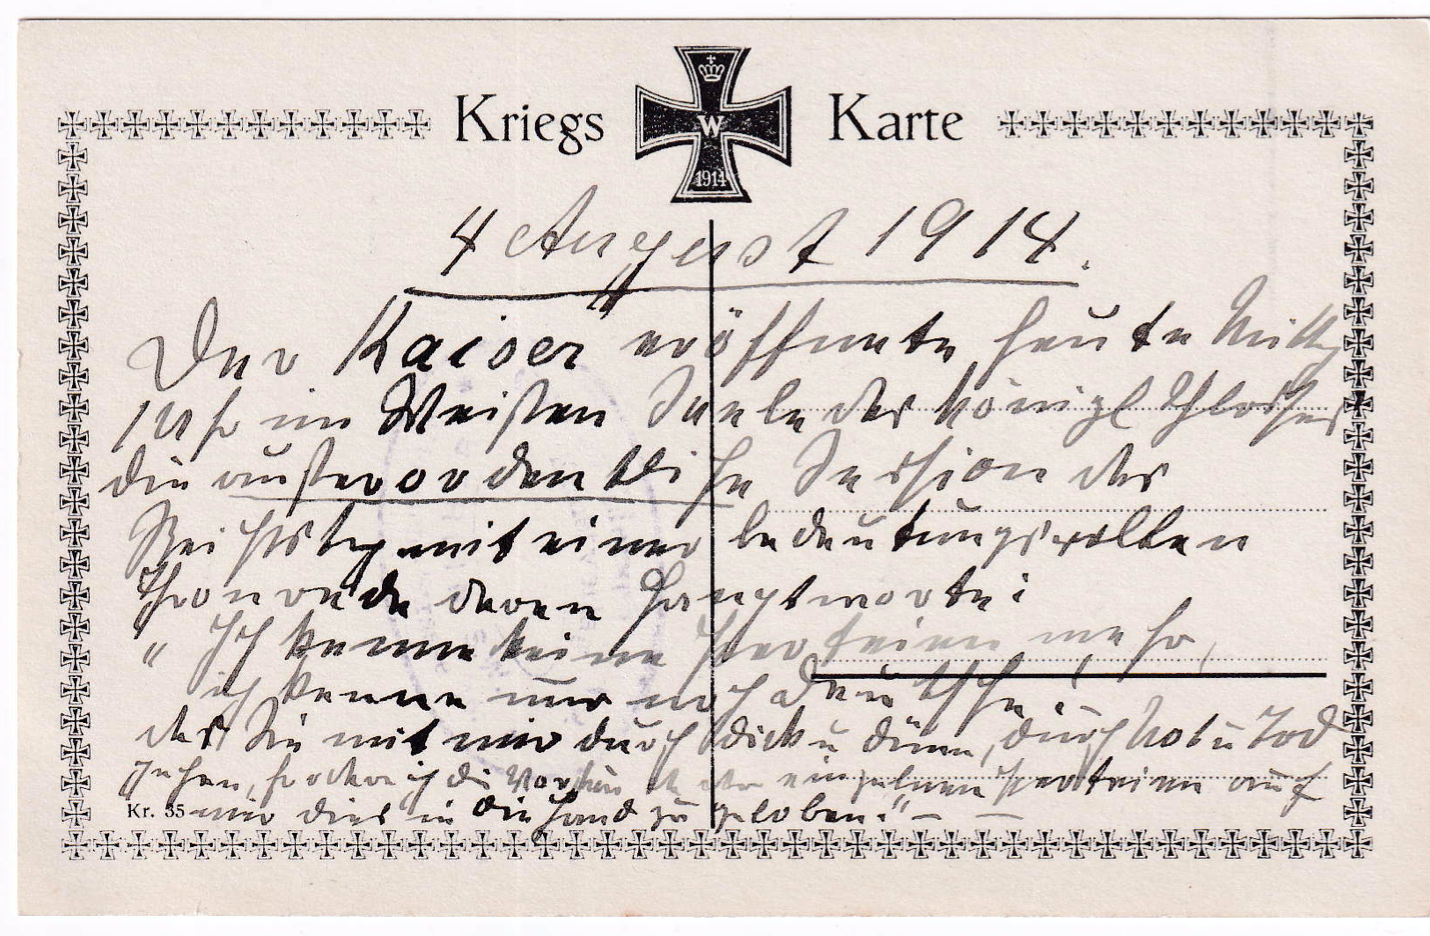 Kriegs Karte
W
1914
4 August 1914.
Der Kaiser eröffnete heute Mittg
1 Uhr im Weißen Saale des Königl Schlosses
die außerordentliche Session des
Reichstag mit einer bedeutungsvollen
Thronrede deren Hauptworte:
„ Ich kenne keine Parteien mehr,
ich kenne nur noch Deutsche!
daß Sie mit mir durch dick u dünn, durch Not u Tod
gehen, fordere ich die Vorstände der einzelnen Parteien auf
Kr. 35 mir dies in die Hand zu geloben!" — —